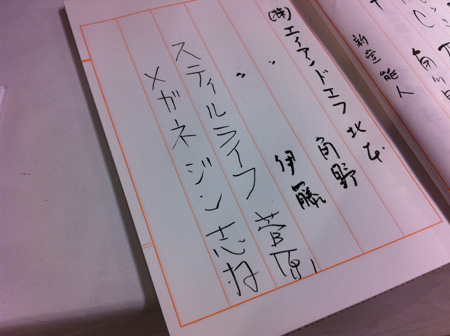 (株)エイアンドエフ 北本
〃 角野
〃 伊藤
スティルライフ 菅原
メガネジン志ね